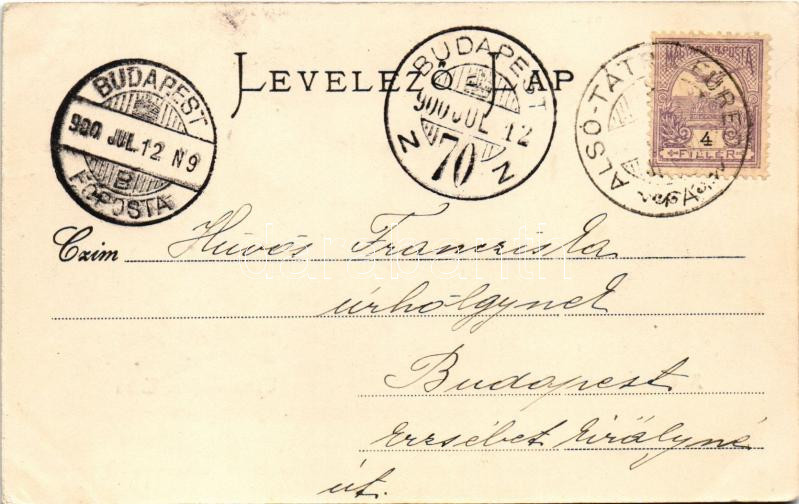 LEVELEZŐ LAP
BUDAPEST
900 JUL. 12 N 9
B
FŐPOSTA
BUDAPEST
900 JUL 12
N 70 N
ALSÓ-TÁTRAFÜRED
MAGYAR KIR. POSTA
4
FILLÉR
Czim Hüvös Franciska
úrhölgynek
Budapest
Erzsébet királyné
út.
darabanth